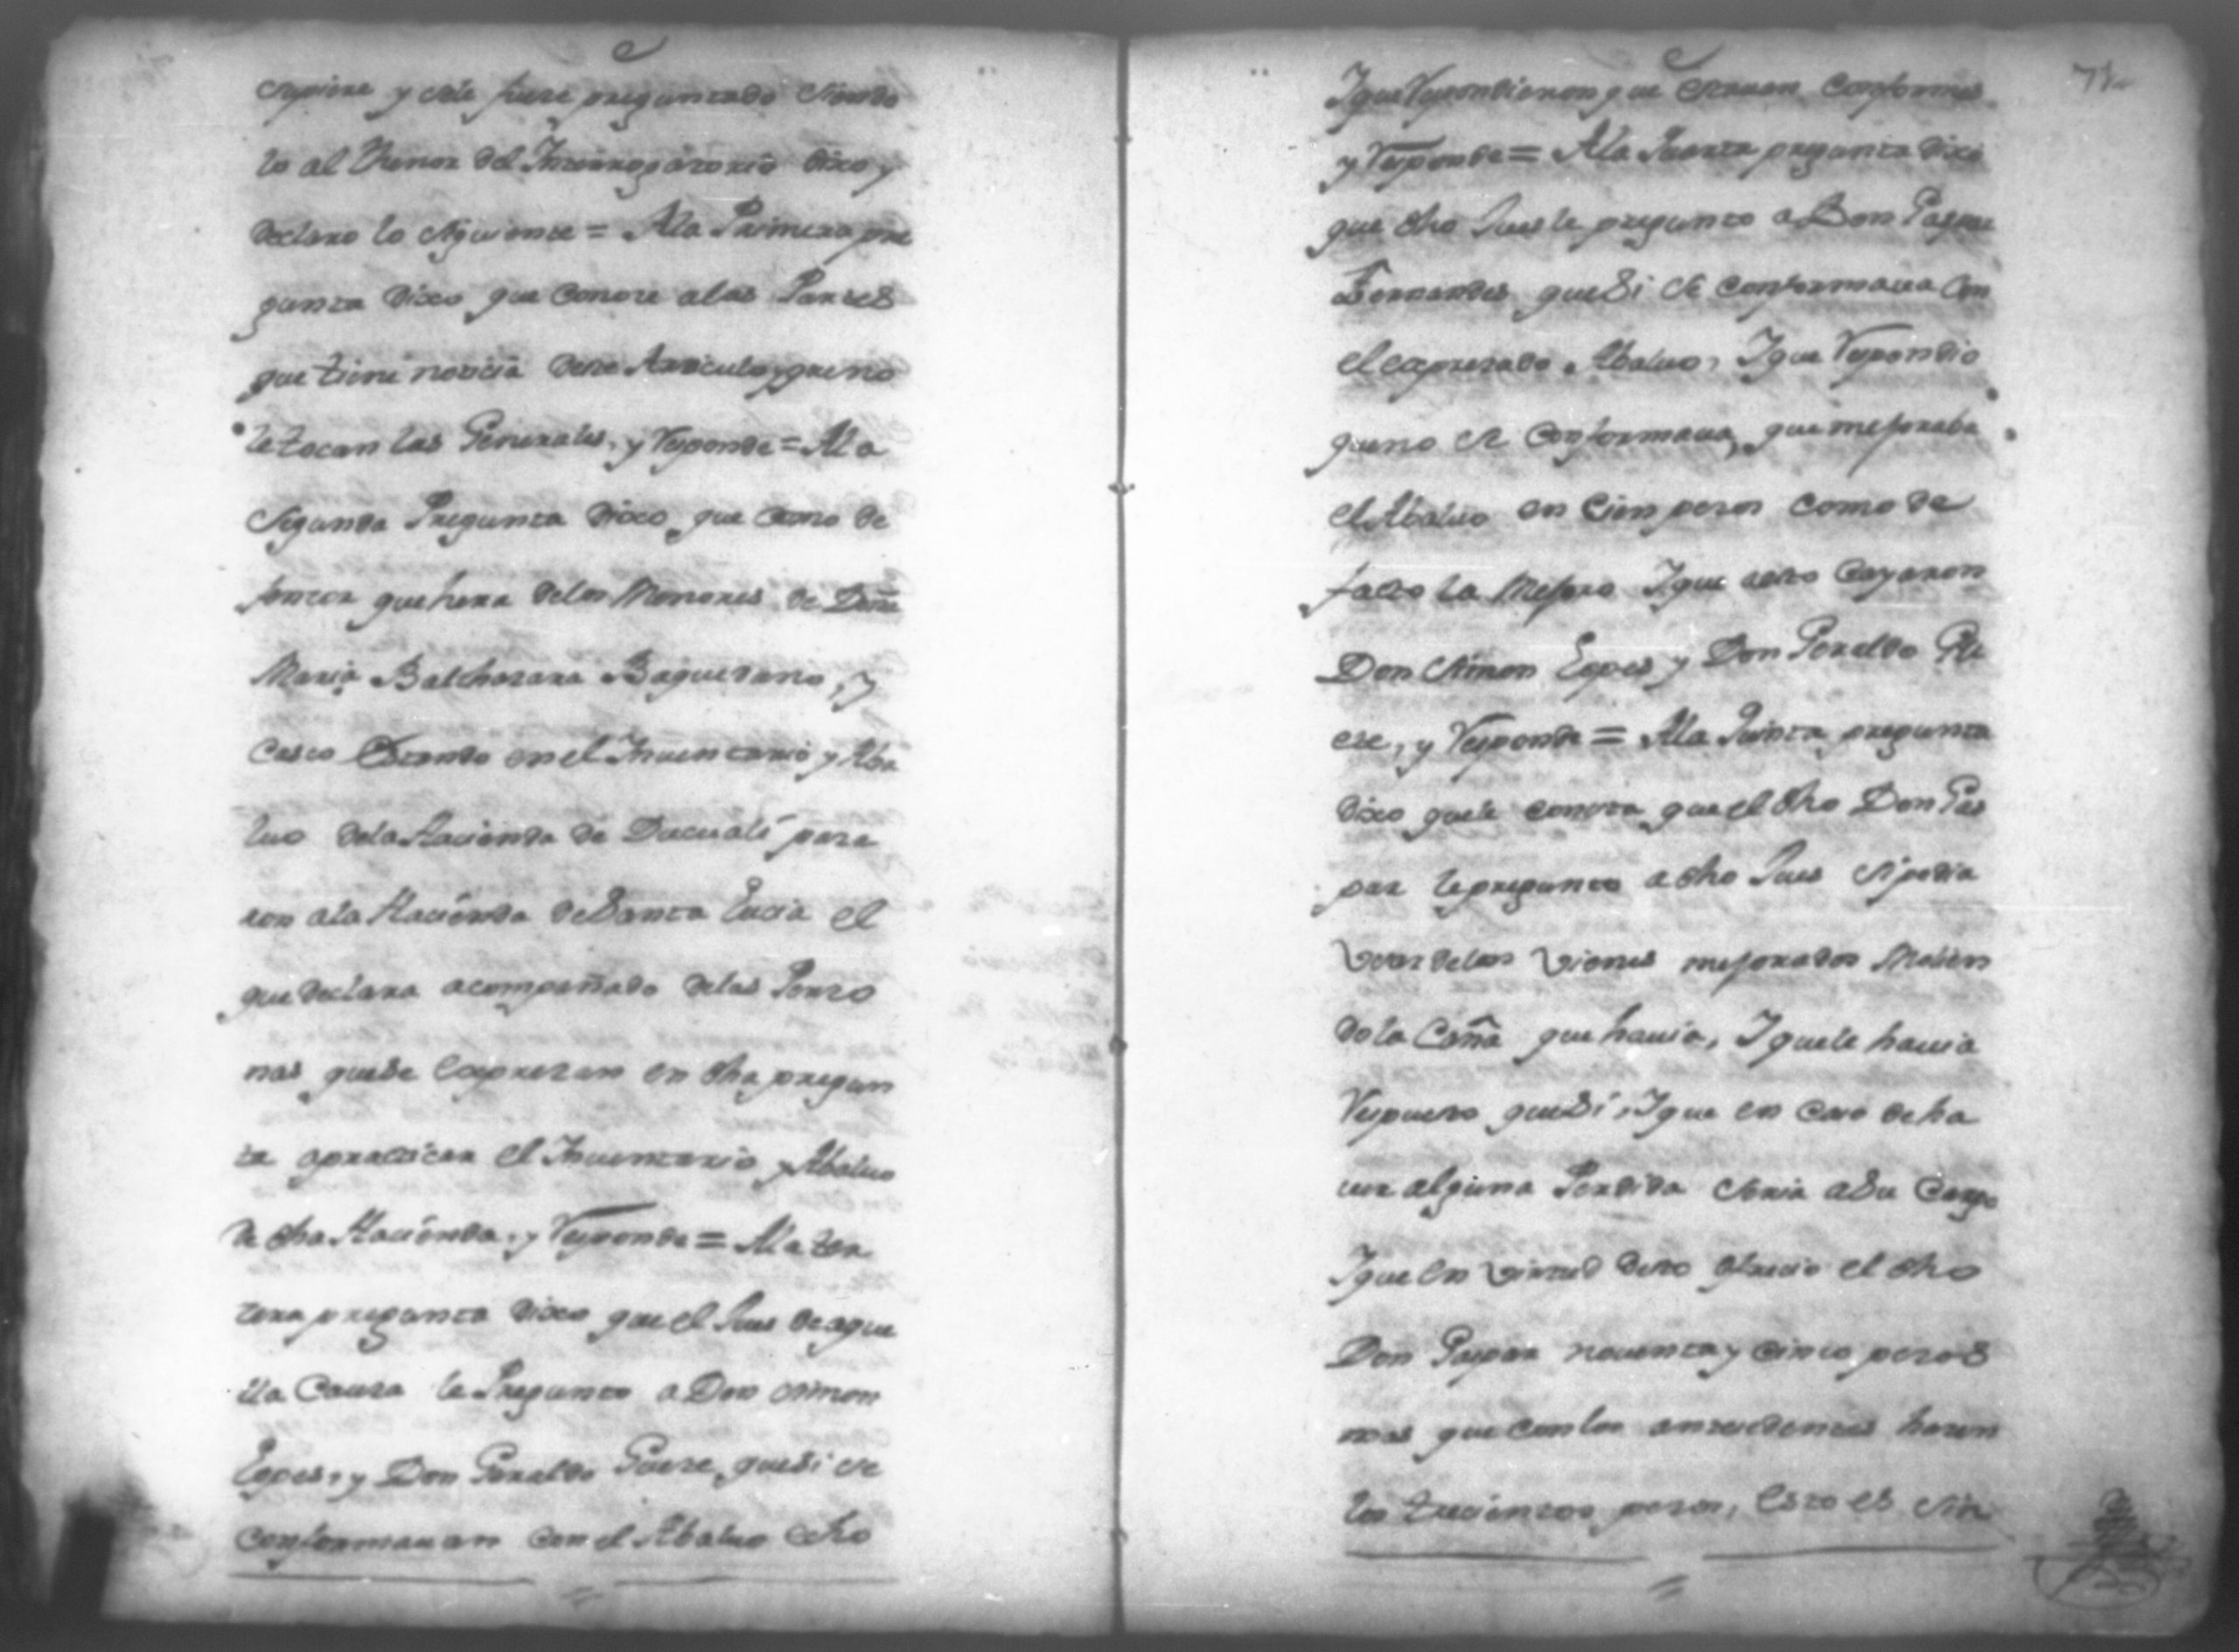 supiere y se le fuere preguntado siendo
lo al thenor del Interrogatorio dixo y
declaro lo siguiente = A la Primera pre
gunta dixo que conose a las Partes
que tiene noticia deste Articulo y que no
le tocan las Generales, y Responde = A la
Segunda Pregunta dixo que como de
fensor que hera de los Menores de Doña
Maria Balthazara Baquedano, y
Casco Estando en el Inuentario y Aba
luo de la Hacienda de Ducuali pasa
ron a la Hacienda de Santa Lucia el
que declara acompañado de las Perso
nas que se Expresan en dha pregun
ta apracticar el Inuentario y Abaluo
de dha Hacienda, y Responde = A la ter
sera pregunta dixo que el Jues de aque
lla Causa le Pregunto a Don Simon
Lopes, y Don Peraldo que si se
conformauan con el Abaluo dho
71
Y que Respondieron que estauan Conformes
y Responde = A la Quarta pregunta dixo
que dho Jues le pregunto a Don Gaspar
Fernandes que si se conformaua Con
el expresado Abaluo, Y que Respondio
que no se conformaua, que mejoraba
el Abaluo en Cien pesos como de
facto la Mejoro Y que a esto Cayaron
Don Simon Lopes y Don Peraldo
y Responde = A la Quinta pregunta
dixo que le consta que el dho Don Gas
par le pregunto a dho Jues si podia
Vsar de los Vienes mejorados Molien
do la Caña que hauia, Y que le hauia
Respuesto que Si, Y que en caso de ha
uer alguna Perdida seria a Su Cargo
Y que en Virtud desto ofrecio el dho
Don Gaspar nouenta y cinco pesos
mas que con los antecedentes hasen
los trecientos pesos, Esto es sin